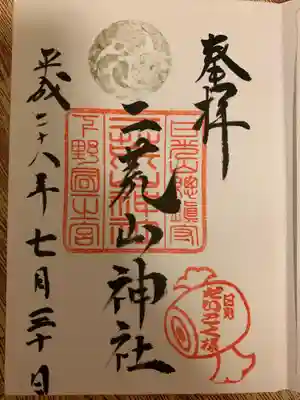 奉拝
日光総鎮守
二荒山神社
下野国一之宮
平成二十八年七月三十日
日光
だいこく様